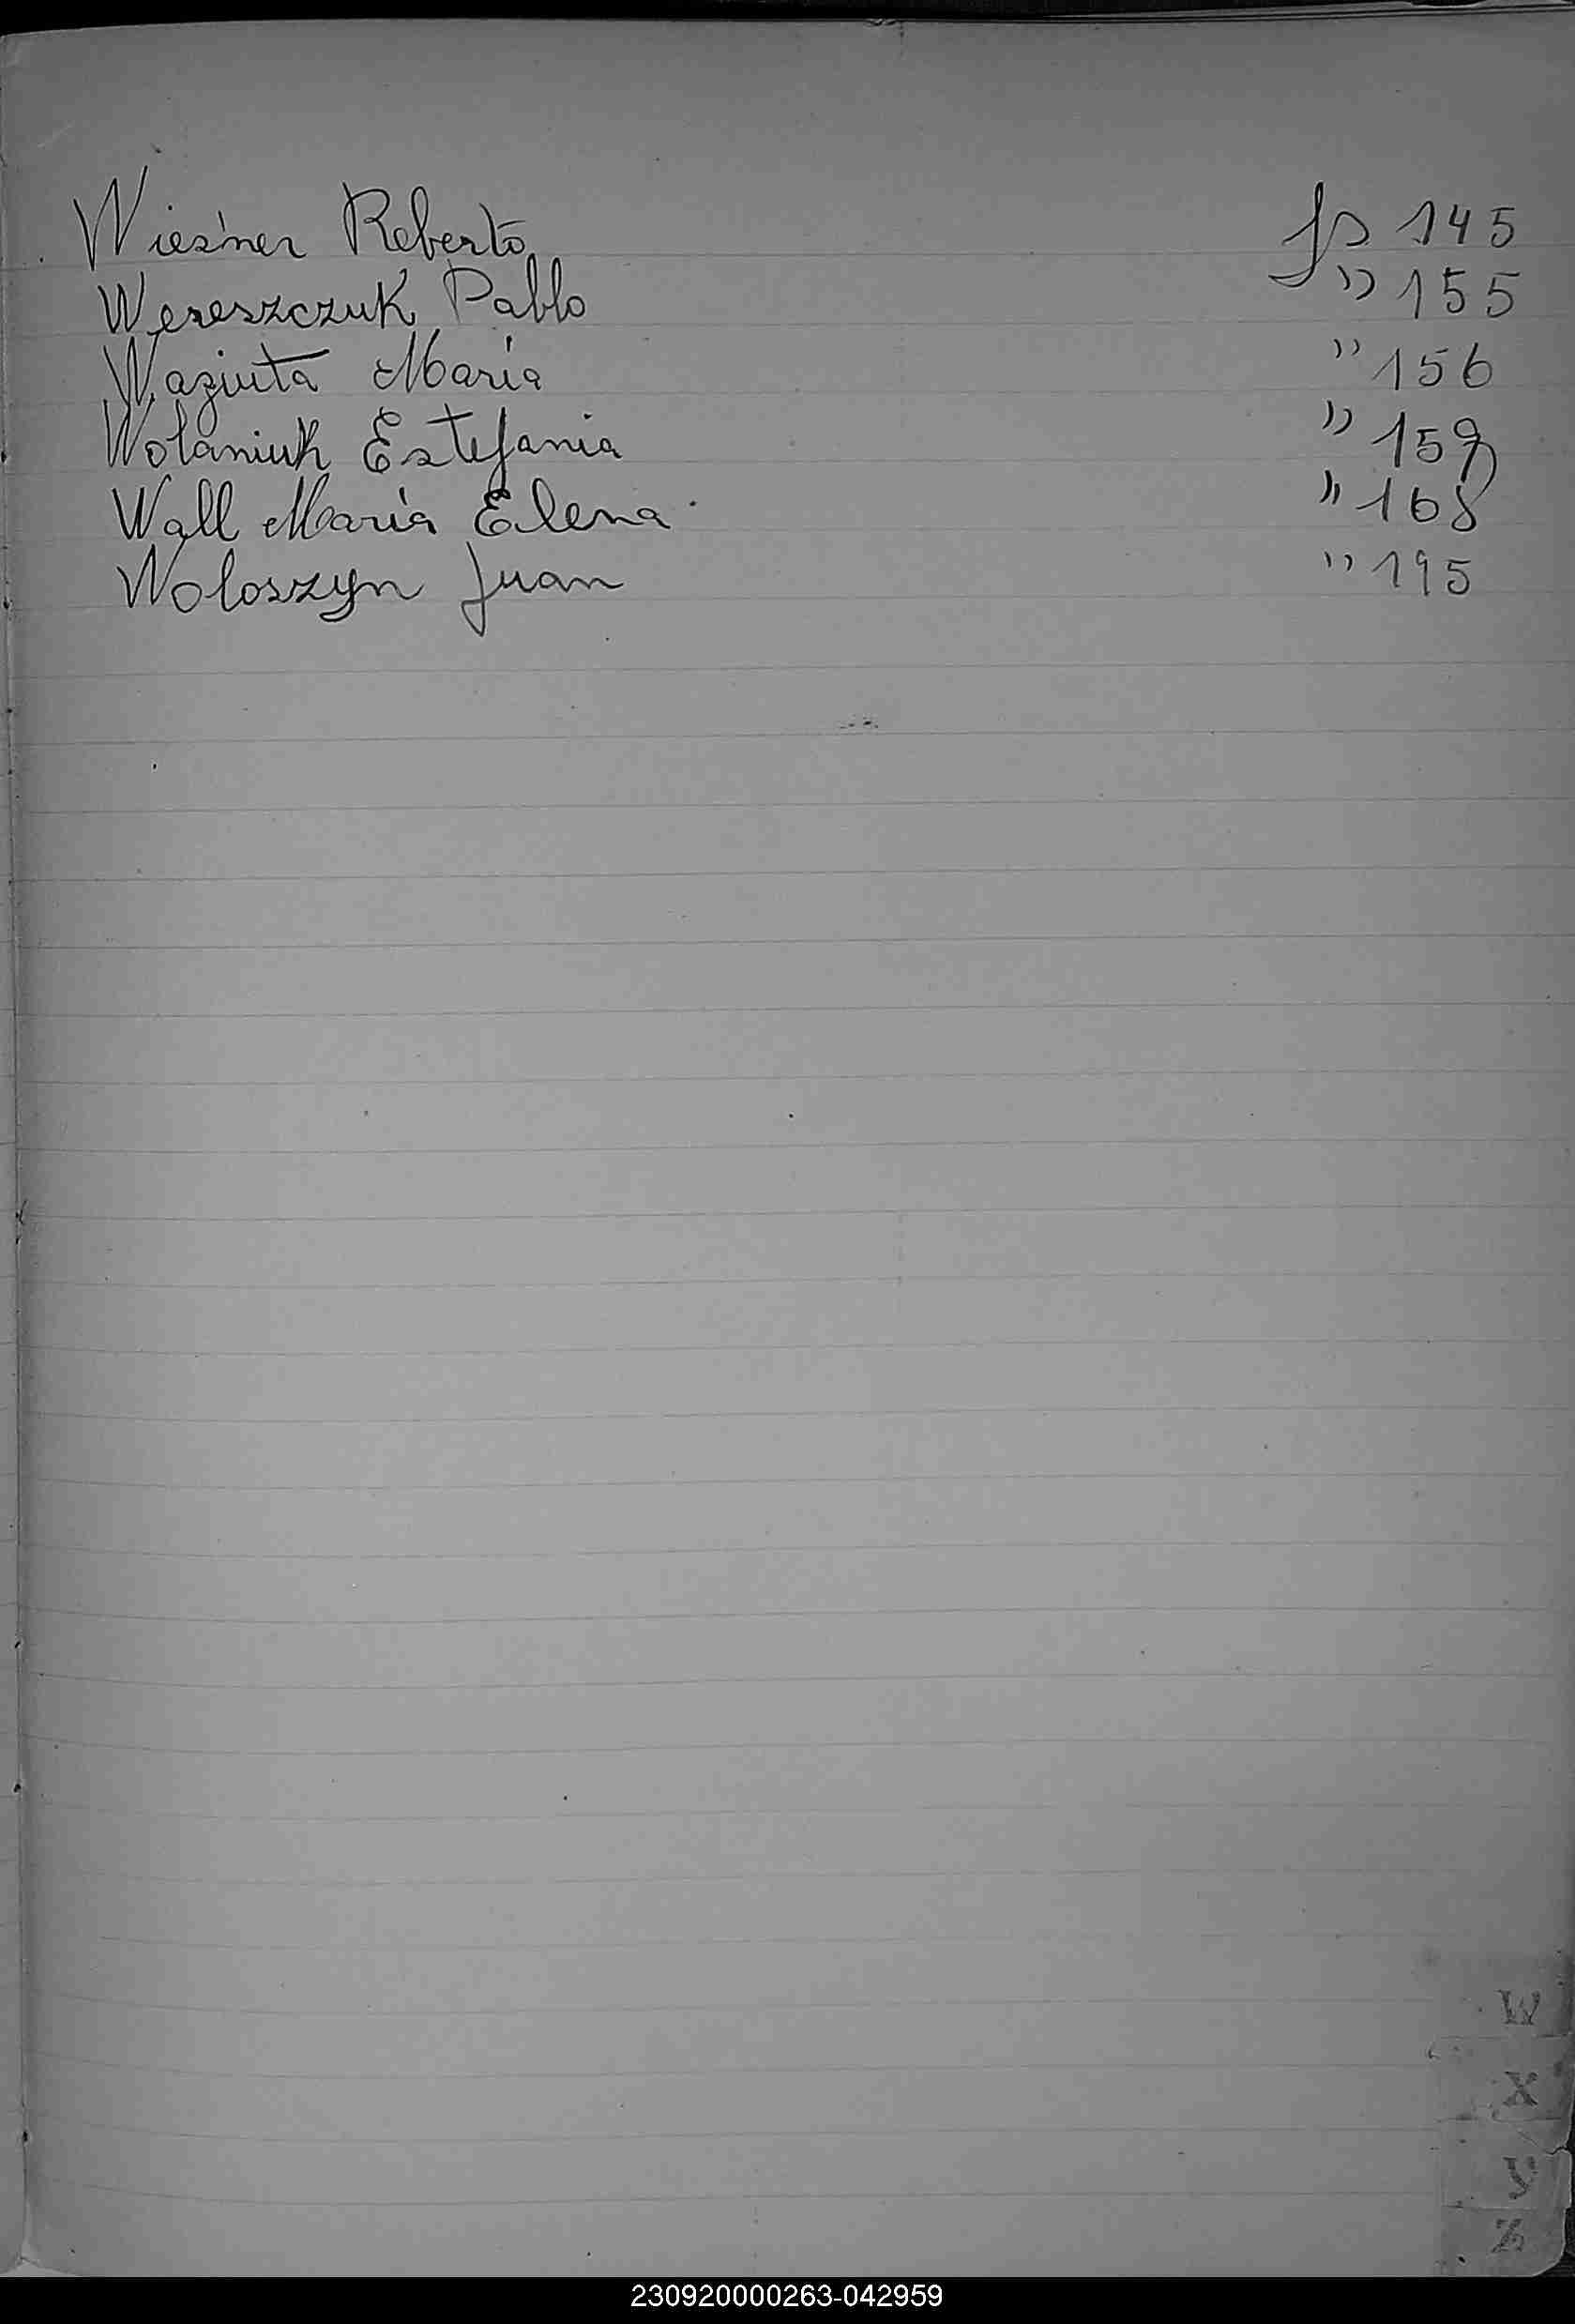 Wiesner Roberto fs 145
Wereszczuk Pablo " 155
Waziuta Maria " 156
Wolaniuk Estefania " 159
Wall María Elena " 168
Woloszyn Juan " 195
W
X
Y
Z
230920000263-042959